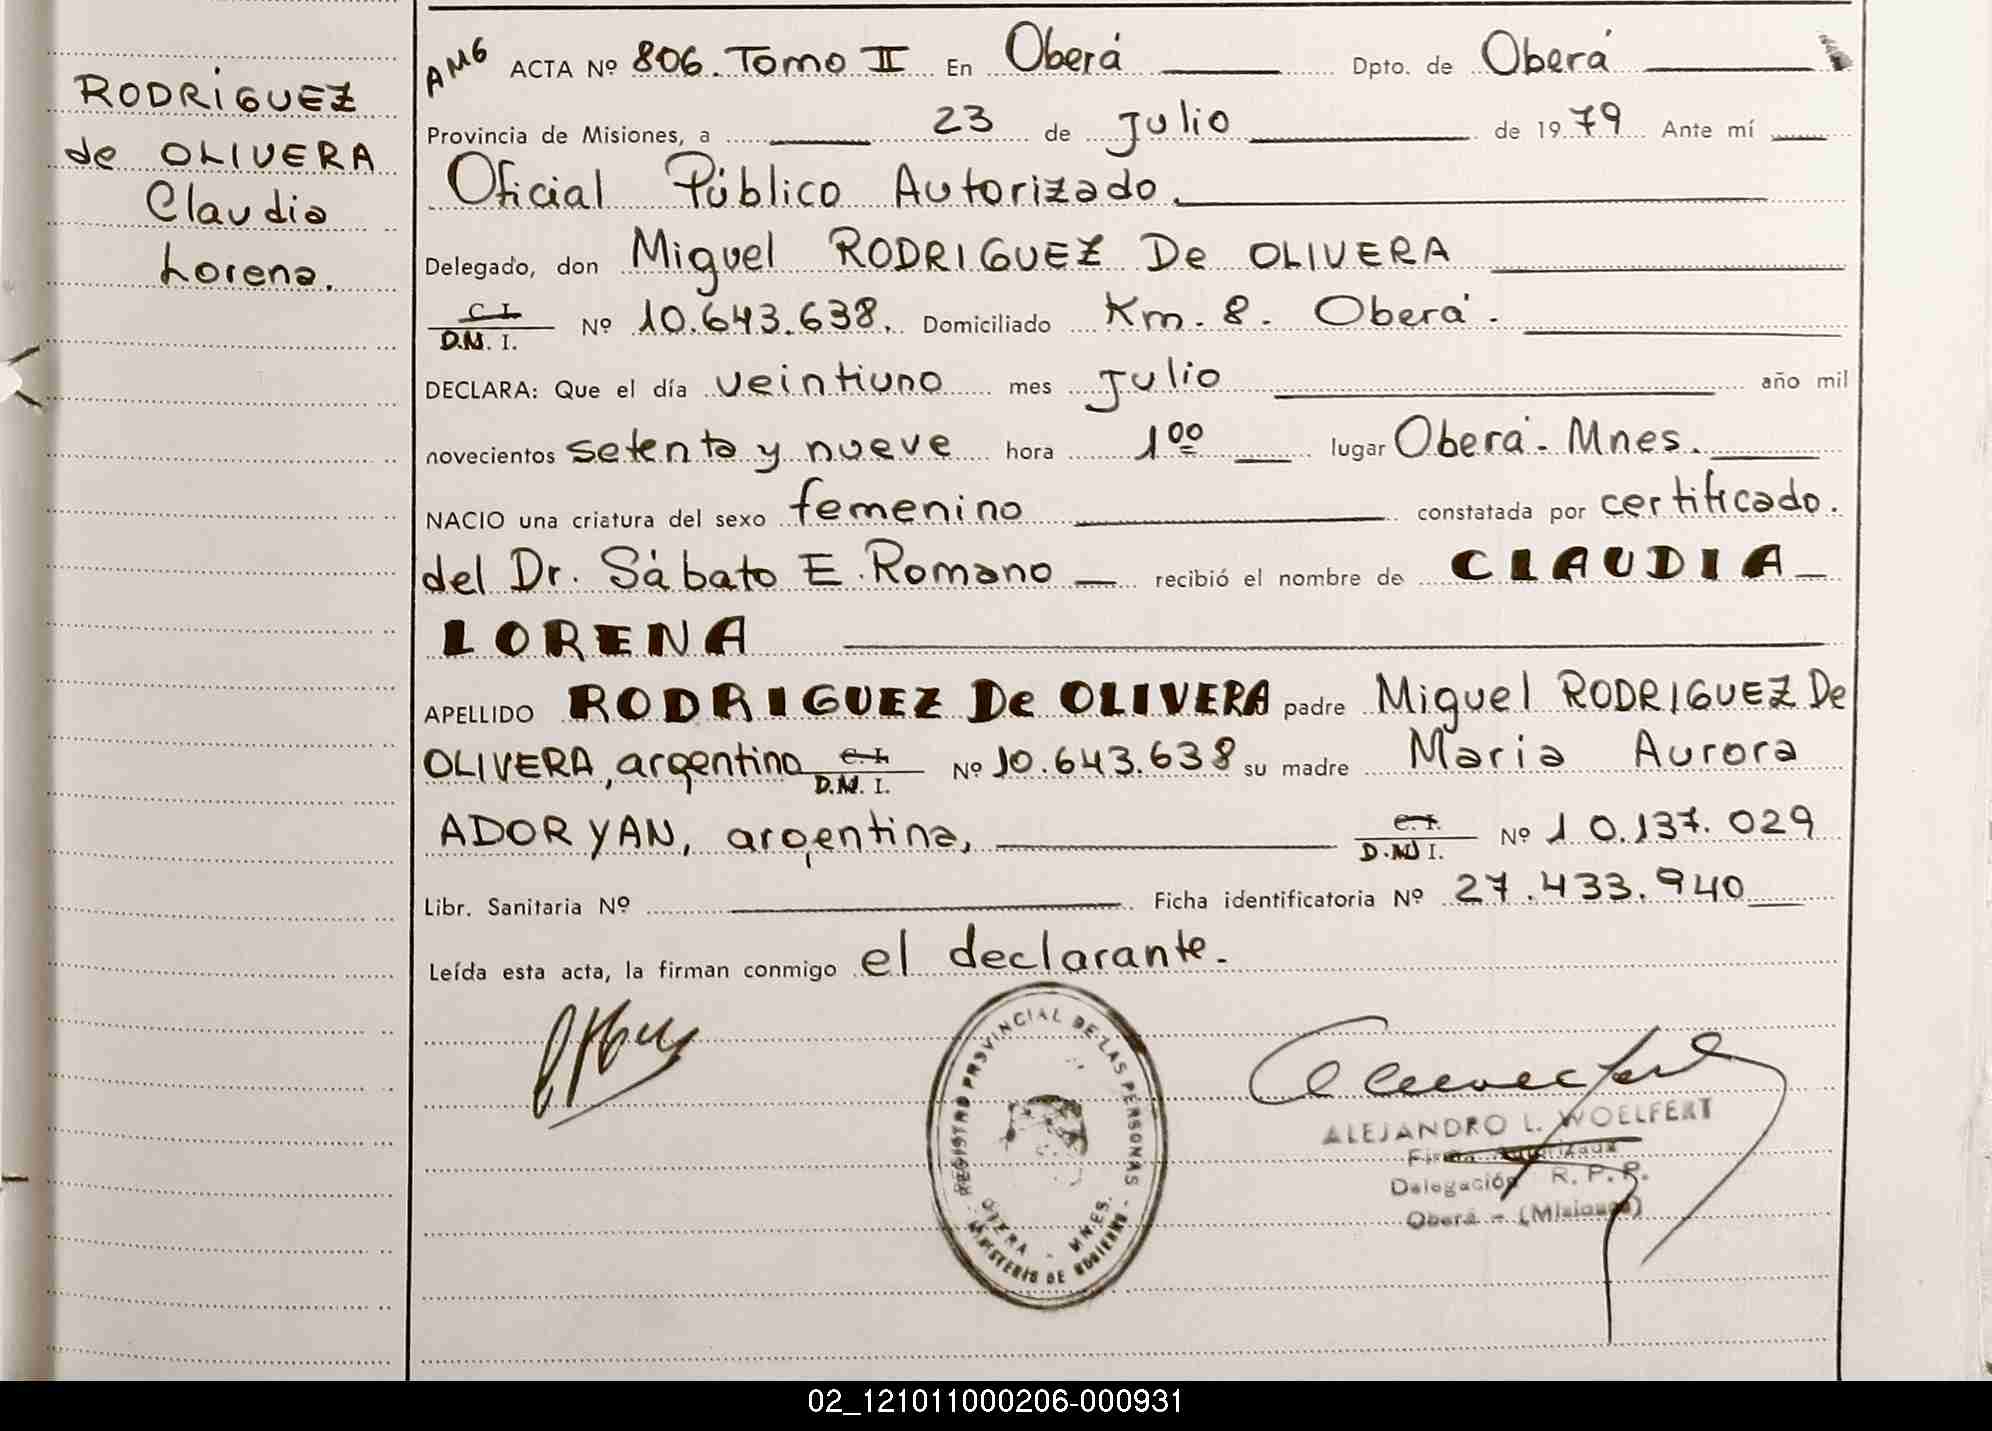 RODRIGUEZ
de OLIVERA
Claudia
Lorena.
AMG ACTA Nº 806. Tomo II En Oberá Dpto. de Oberá
Provincia de Misiones, a 23 de Julio de 1979 Ante mí
Oficial Público Autorizado.
Delegado, don Miguel RODRIGUEZ De OLIVERA
C.I.
D.N.I. Nº 10.643.638. Domiciliado Km. 8. Oberá.
DECLARA: Que el día veintiuno mes Julio año mil
novecientos setenta y nueve hora 1ºº lugar Oberá. Mnes.
NACIO una criatura del sexo femenino constatada por certificado.
del Dr. Sábato E. Romano recibió el nombre de CLAUDIA
LORENA
APELLIDO RODRIGUEZ De OLIVERA padre Miguel RODRIGUEZ De
OLIVERA, argentino C.I.
D.N.I. Nº 10.643.638 su madre Maria Aurora
ADORYAN, argentina, C.I.
D.N.I. Nº 10.137.029
Libr. Sanitaria Nº Ficha identificatoria Nº 27.433.940
Leída esta acta, la firman conmigo el declarante.
REGISTRO PROVINCIAL DE LAS PERSONAS
OBERA - MNES.
MINISTERIO DE GOBIERNO
ALEJANDRO L. WOELFERT
Firma Autorizada
Delegación R. P. P.
Oberá - (Misiones)
02_121011000206-000931